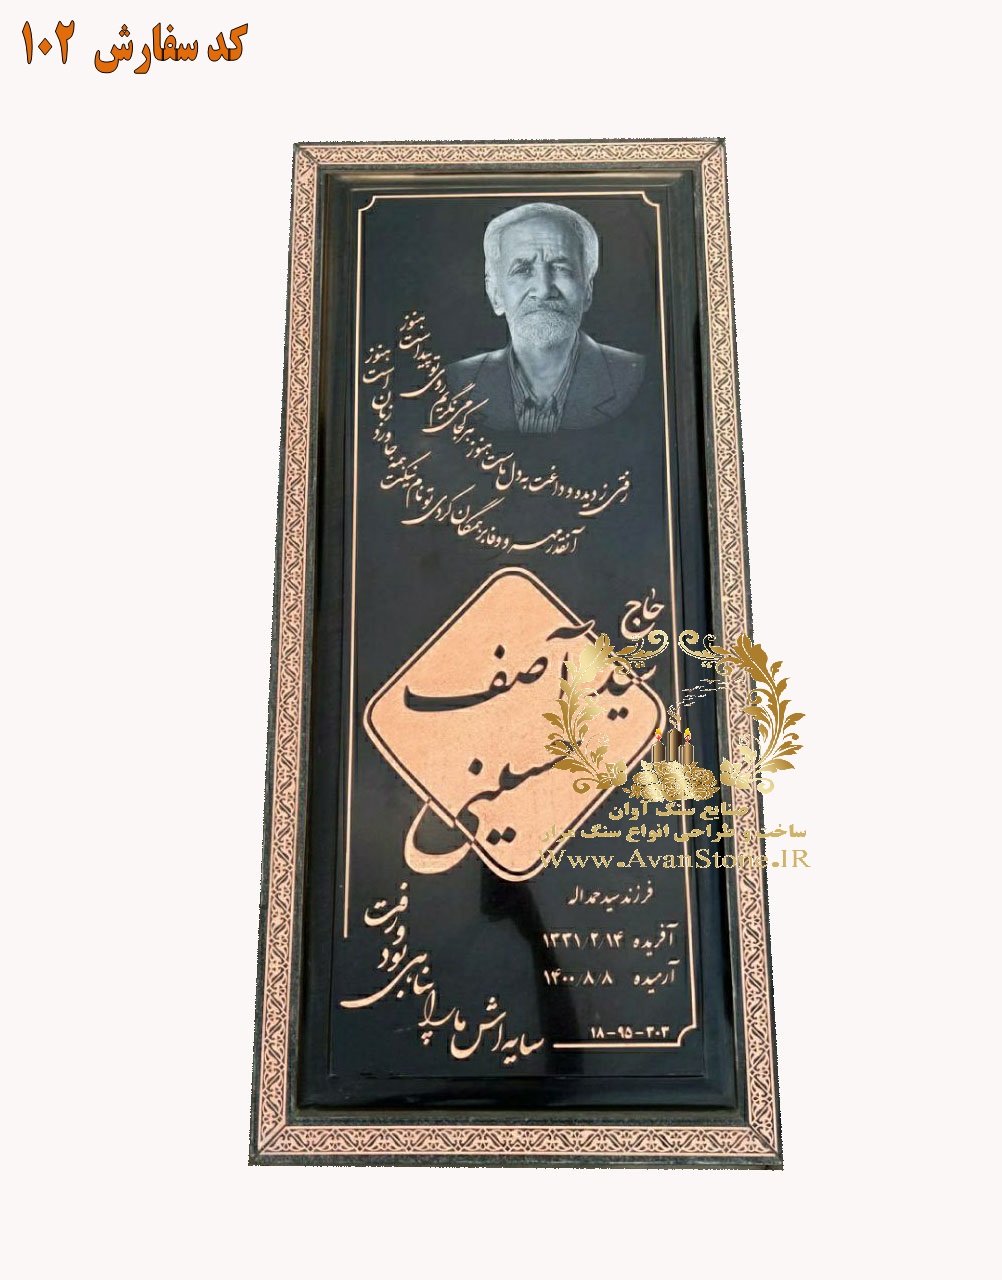 کد سفارش ۱۰۲
رفتی ز دیده و داغت به دل ماست هنوز
هر کجا می نگریم روی تو پیداست هنوز
آنقدر مهر و وفا بر همگان کردی تو
نام نیکت همه جا ورد زبان است هنوز
حاج
سید آصف
حسینی
فرزند سید حمداله
آفریده ۱۳۳۱/۲/۱۴
آرمیده ۱۴۰۰/۸/۸
سایه اش ما را پناهی بود و رفت
۱۸-۹۵-۳۰۳
صنایع سنگ آوان
ساخت و طراحی انواع سنگ مزار
Www.AvanStone.IR